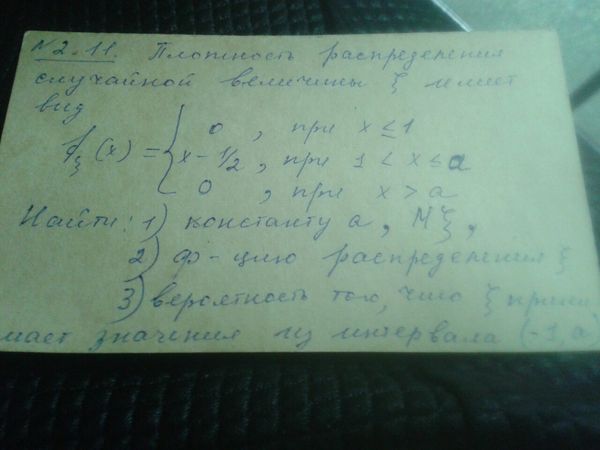 N 2.11. Плотность распределения
случайной величины ξ имеет
вид
f_ξ(x) = { 0, при x ≤ 1
x - 1/2, при 1 < x ≤ a
0, при x > a
Найти: 1) константу a, Mξ,
2) ф-цию распределения ξ
3) вероятность того, что ξ прини
мает значения из интервала (-1, a)